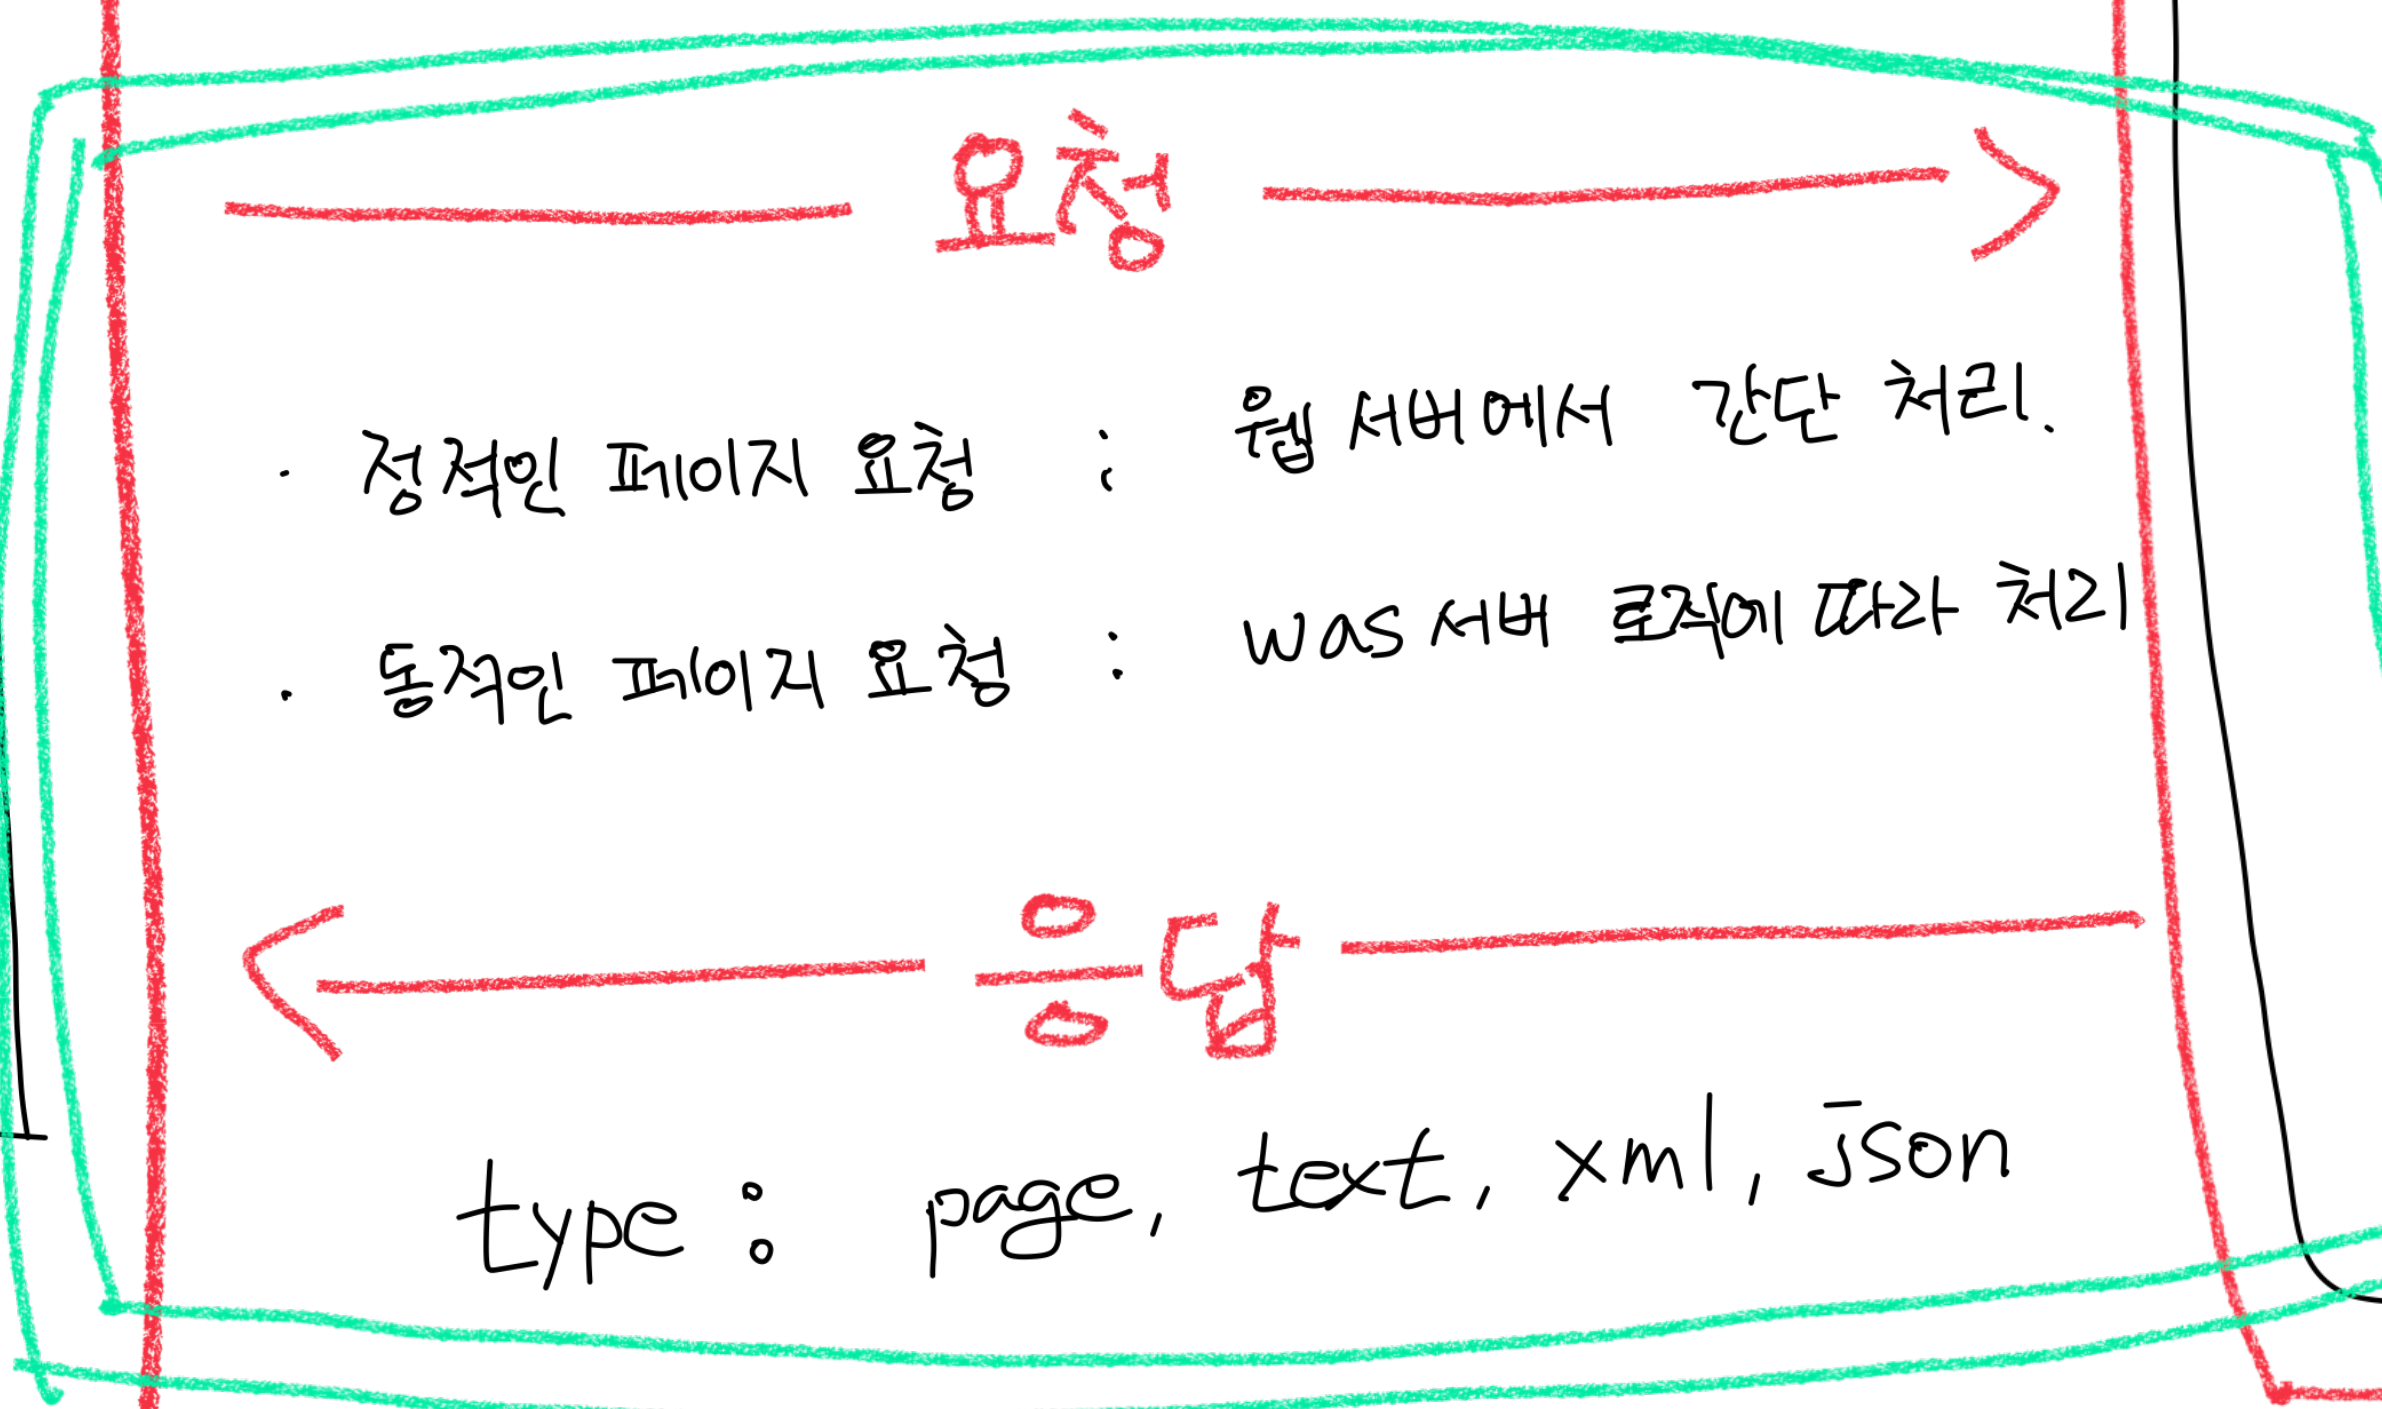 요청
· 정적인 페이지 요청 : 웹 서버에서 간단 처리.
· 동적인 페이지 요청 : was 서버 로직에 따라 처리
응답
type : page, text, xml, json